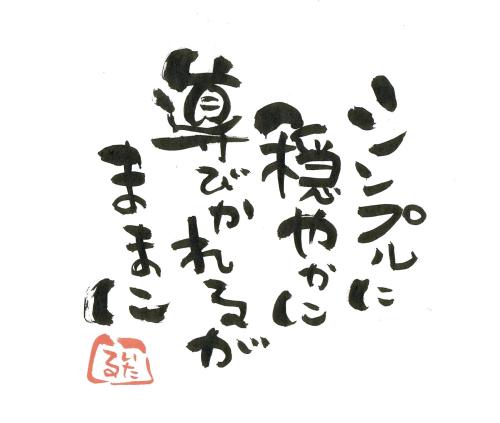 シンプルに
穏やかに
導びかれるが
ままに
いたる